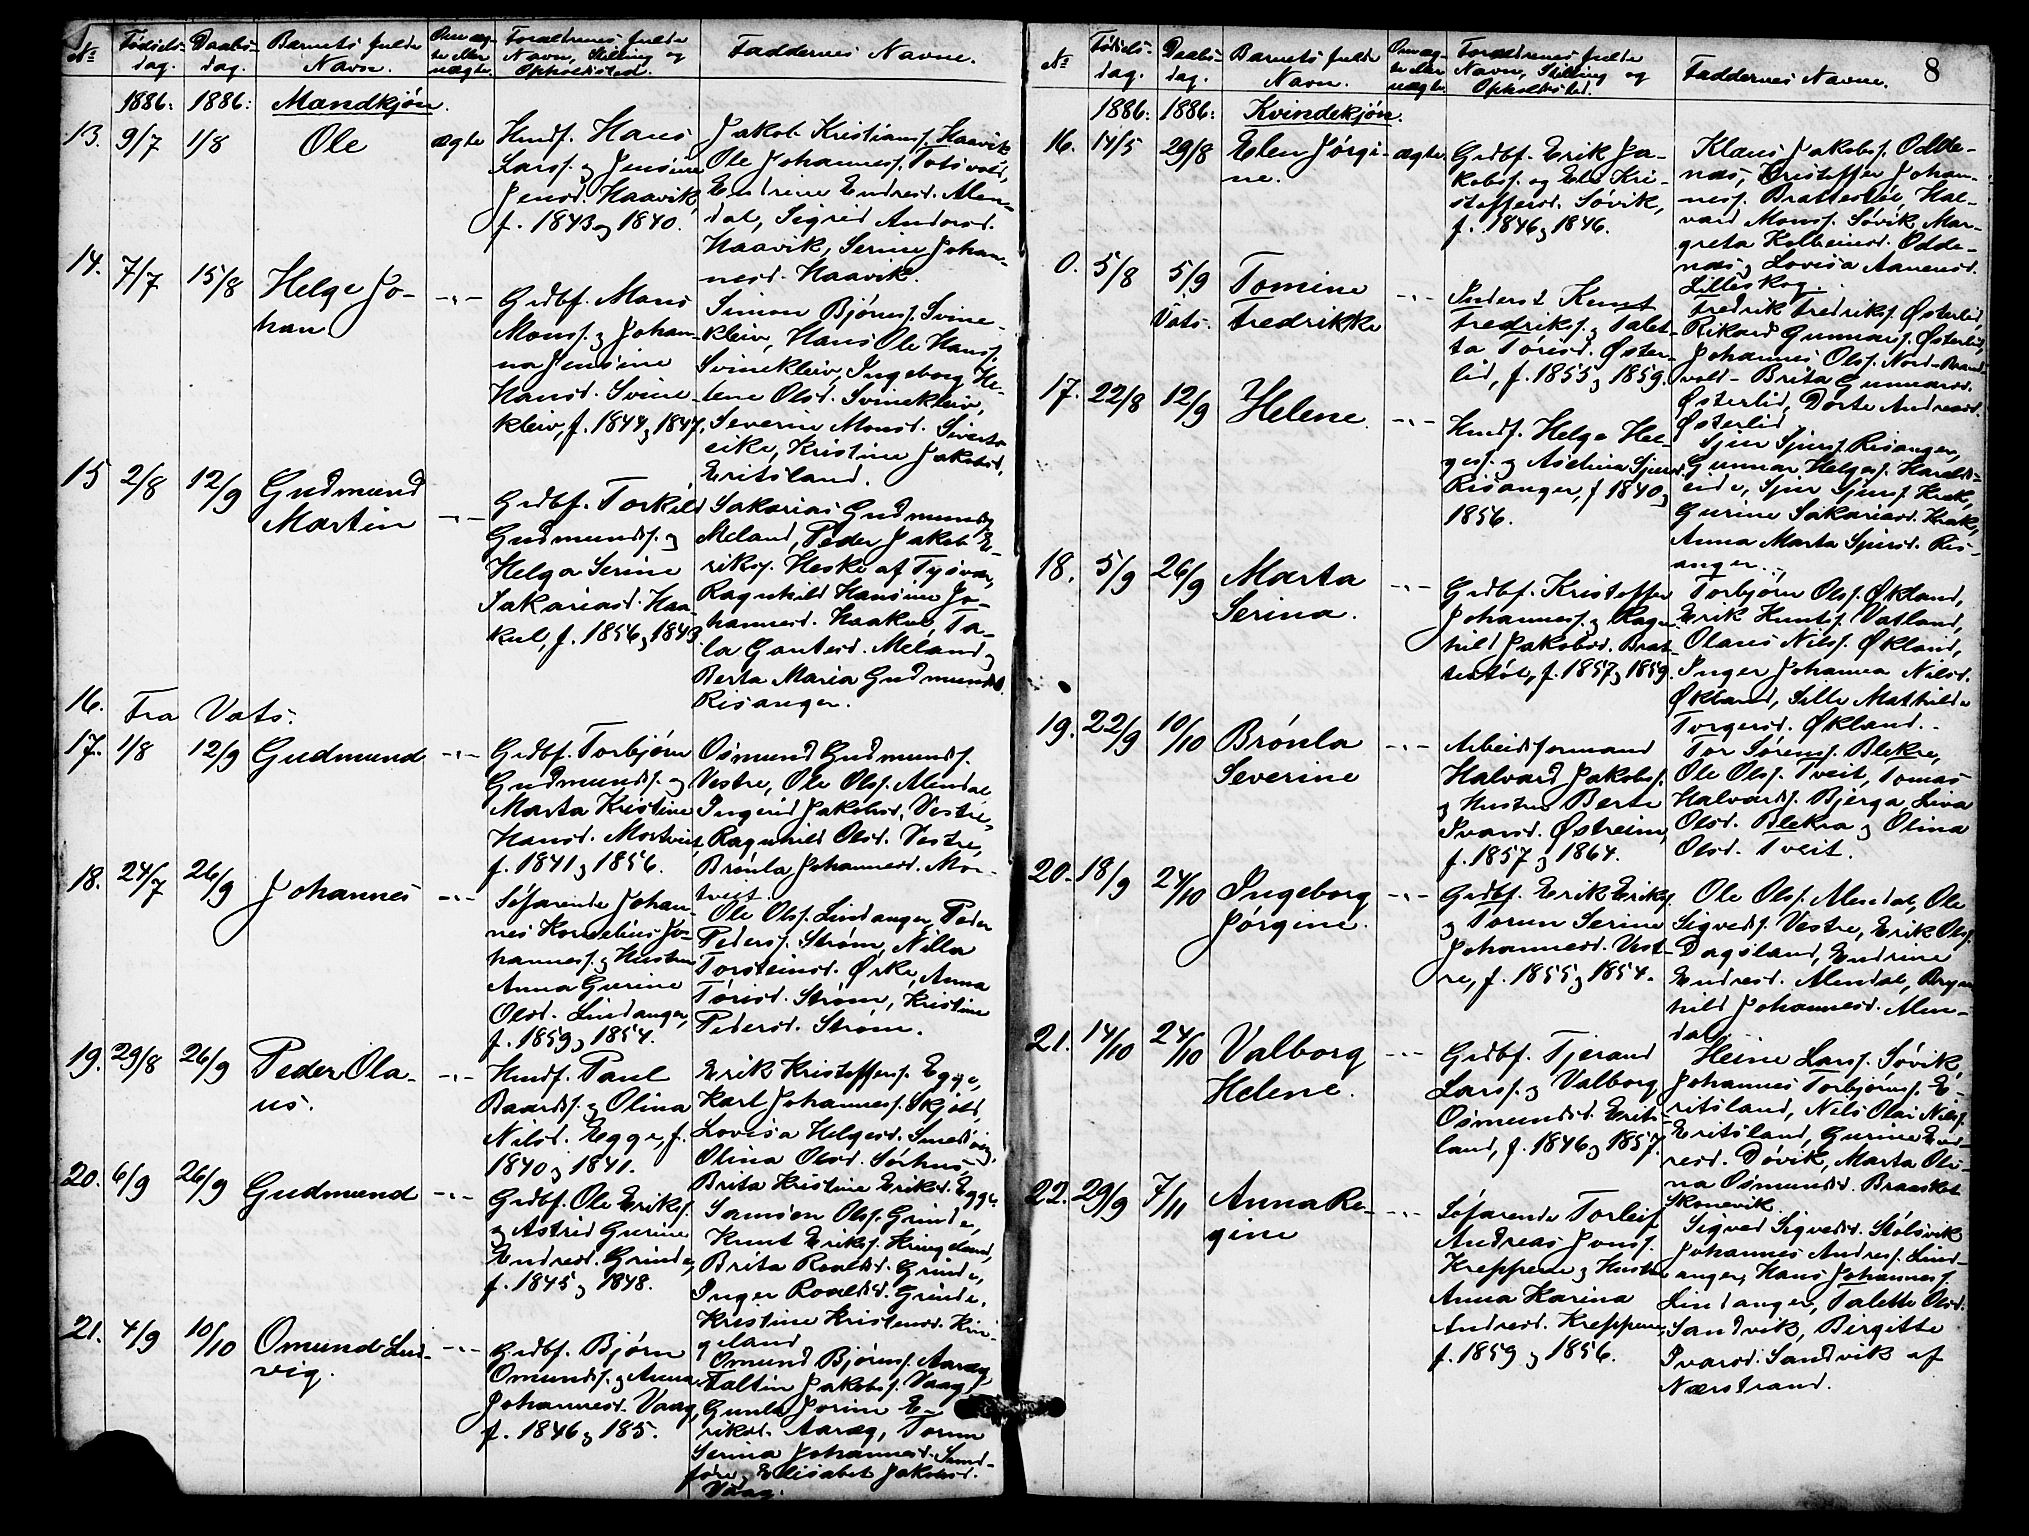 № Fødselsdag. Daabsdag. Barnets fulde Navn. Om ægte eller uægte Forældrenes fulde Navn, Stilling og Opholdssted. Faddernes Navne.
1886: 1886: Mandkjøn.
13. 9/7 1/8 Ole ægte
Husf. Hans
Larss. og Jensine
Jensd. Haavik,
f. 1843 og 1840.
Jakob Kristianss. Haavik
Ole Johanness. Totsvold,
Endrine Endresd. Alen-
dal, Sigrid Andersd.
Haavik, Serine Johan-
nesd. Haavik.
14. 7/7 15/8 Helge Jo-
han
Grdbf. Mons
Monss. og Johan-
na Jensine
Hansd. Svine-
kleiv, f. 1844 og 1847.
Simon Bjørnss. Svine-
kleiv, Hans Ole Hanss.
Svinekleiv, Ingeborg He-
lene Olsd. Svinekleiv,
Severine Monsd. Siverts-
eike, Kristine Jakobsd.
Eritsland.
15 2/8 12/9 Gudmund
Martin
Grdbf. Torkild
Gudmunds. og
Helga Serine
Sakariasd. Haa-
kul, f. 1856 og 1843.
Sakarias Gudmunds.
Meland, Peder Jakob E-
rikss. Heske af Tysvær,
Ragnhild Hansine Jo-
hannesd. Haakul, Ta-
la Gautesd. Meland og
Berta Maria Gudmundsd.
Risanger.
16. Fra Vats.
17. 1/8 12/9 Gudmund
Grdbf. Torbjørn
Gudmunds. og
Marta Kristine
Hansd. Mortveit,
f. 1841 og 1856.
Osmund Gudmunds.
Vestre, Ole Olss. Alendal,
Ingerid Jakobsd. Vestre,
Ragnhild Olsd. Vestre,
Brønla Johannesd. Mor-
tveit.
18. 24/7 26/9 Johannes
Søfarende Johan-
nes Kornelius Jo-
hanness. og Hustru
Anna Gurine
Olsd. Lindanger,
f. 1859 og 1854.
Ole Olss. Lindanger, Peder
Pederss. Strøm, Nilla
Torsteinsd. Ørke, Anna
Tørisd. Strøm, Kristine
Pedersd. Strøm.
19. 29/8 26/9 Peder Ola-
us.
Husf. Paul
Baards. og Olina
Nilsd. Egge, f.
1840 og 1841.
Erik Kristofferss. Egge,
Karl Johanness. Skjold,
Lovisa Helgesd. Smedsvig,
Olina Olsd. Sørhus,
Brita Kristine Eriksd. Egge.
20. 6/9 26/9 Gudmund
Grdbf. Ole Erikss.
og Astrid Gurine
Endresd. Grinde,
f. 1845 og 1848.
Samson Olss. Grinde,
Knut Erikss. Kringeland,
Brita Roaldsd. Grinde,
Inger Roaldsd. Grinde,
Kristine Kristensd. Krin-
geland
21. 4/9 10/10 Omund Lud-
vig.
Grdbf. Bjørn
Omunds. og Anna
Johannesd. Vaag,
f. 1846 og 185.
Omund Bjørnss. Aaræg,
Faltin Jakobss. Vaag,
Gunla Jorine E-
riksd. Aaræg, Torun
Serina Johannesd. Sund-
føre, Elisabet Jakobsd.
Vaag.
8
№ Fødselsdag. Daabsdag. Barnets fulde Navn. Om ægte eller uægte Forældrenes fulde Navn, Stilling og Opholdssted. Faddernes Navne.
1886: 1886: Kvindekjøn.
16. 14/5 29/8 Elen Jørgi-
ne.
ægte. Grdbf. Erik Ja-
kobss. og Eli Kri-
stoffersd. Søvik,
f. 1846 og 1846.
Klaus Jakobss. Odde-
næs, Kristoffer Johan-
ness. Brattestøl, Hal-
vard Monss. Søvik, Mar-
greta Kolbeinsd. Odde-
næs, Lovisa Aanensd.
Lilleskog.
0. 5/8 5/9 Tomine
Vats. Fredrikke
Inderst Knut
Fredrikss. og Talet-
ta Tørisd. Øster-
lid, f. 1855 og 1859.
Fredrik Fredrikss. Østerlid,
Rikard Gunnarss. Østerlid,
Johannes Olss. Nord-Brand-
vold- Brita Gunnarsd.
Østerlid, Dorte Andreasd.
Østerlid
17. 22/8 12/9 Helene.
Husf. Helge Hel-
gess. og Aselina Sjursd.
Risanger, f 1840 og
1856.
Sjur Sjurss. Risanger,
Gunnar Helgess. Haralds-
eide, Sjur Sjurss. Krak,
Gurine Sakariasd. Krak,
Anna Marta Sjursd. Ris-
anger.
18. 5/9 26/9 Marta
Serina.
Grdbf. Kristoffer
Johanness. og Ragn-
hild Jakobsd. Brat-
testøl, f. 1857 og 1859.
Torbjørn Olss. Økland,
Erik Knutss. Vatland,
Olaus Nilss. Økland,
Inger Johanna Nilsd.
Økland, Sille Mathilde
Torgersd. Økland.
19. 22/9 10/10 Brønla
Severine
Arbeidsformand
Halvard Jakobss.
og Hustru Berta
Ivarsd. Østreim,
f. 1857 og 1864.
Tor Sørenss. Blekre,
Ole Olss. Tveit, Tomas
Halvards. Bjerga, Liva
Olsd. Blekra og Olina
Olsd. Tveit.
20. 18/9 24/10 Ingeborg
Jørgine.
Grdbf. Erik Erikss.
og Torun Serine
Johannesd. Vest-
re, f. 1855 og 1854.
Ole Olss. Alendal, Ole
Sigveds. Vestre, Erik Olss.
Dagsland, Endrine
Endresd. Alendal, Bryn-
hild Johannesd. Alen-
dal.
21. 14/10 24/10 Valborg
Helene.
Grdbf. Tjerand
Larss. og Valborg
Osmundsd. Erits-
land, f. 1846 og 1857.
Heine Larss. Søvik,
Johannes Torbjørnss. E-
ritsland, Nils Olai Nilss.
Eritsland, Gurine End-
resd. Døvik, Marta Oli-
na Osmundsd. Braaskot
Skonevik.
22. 29/9 7/11 Anna Re-
gine
Søfarende Torleif
Andreas Jonss.
Kreppene og Hustru
Anna Karina
Andresd. Kreppene,
f. 1859 og 1856.
Sigved Sigveds. Stølsvik
Johannes Andress. Lind-
anger, Hans Johanness.
Lindanger, Talette Olsd.
Sandvik, Birgitte
Ivarsd. Sandvik af
Nærstrand.